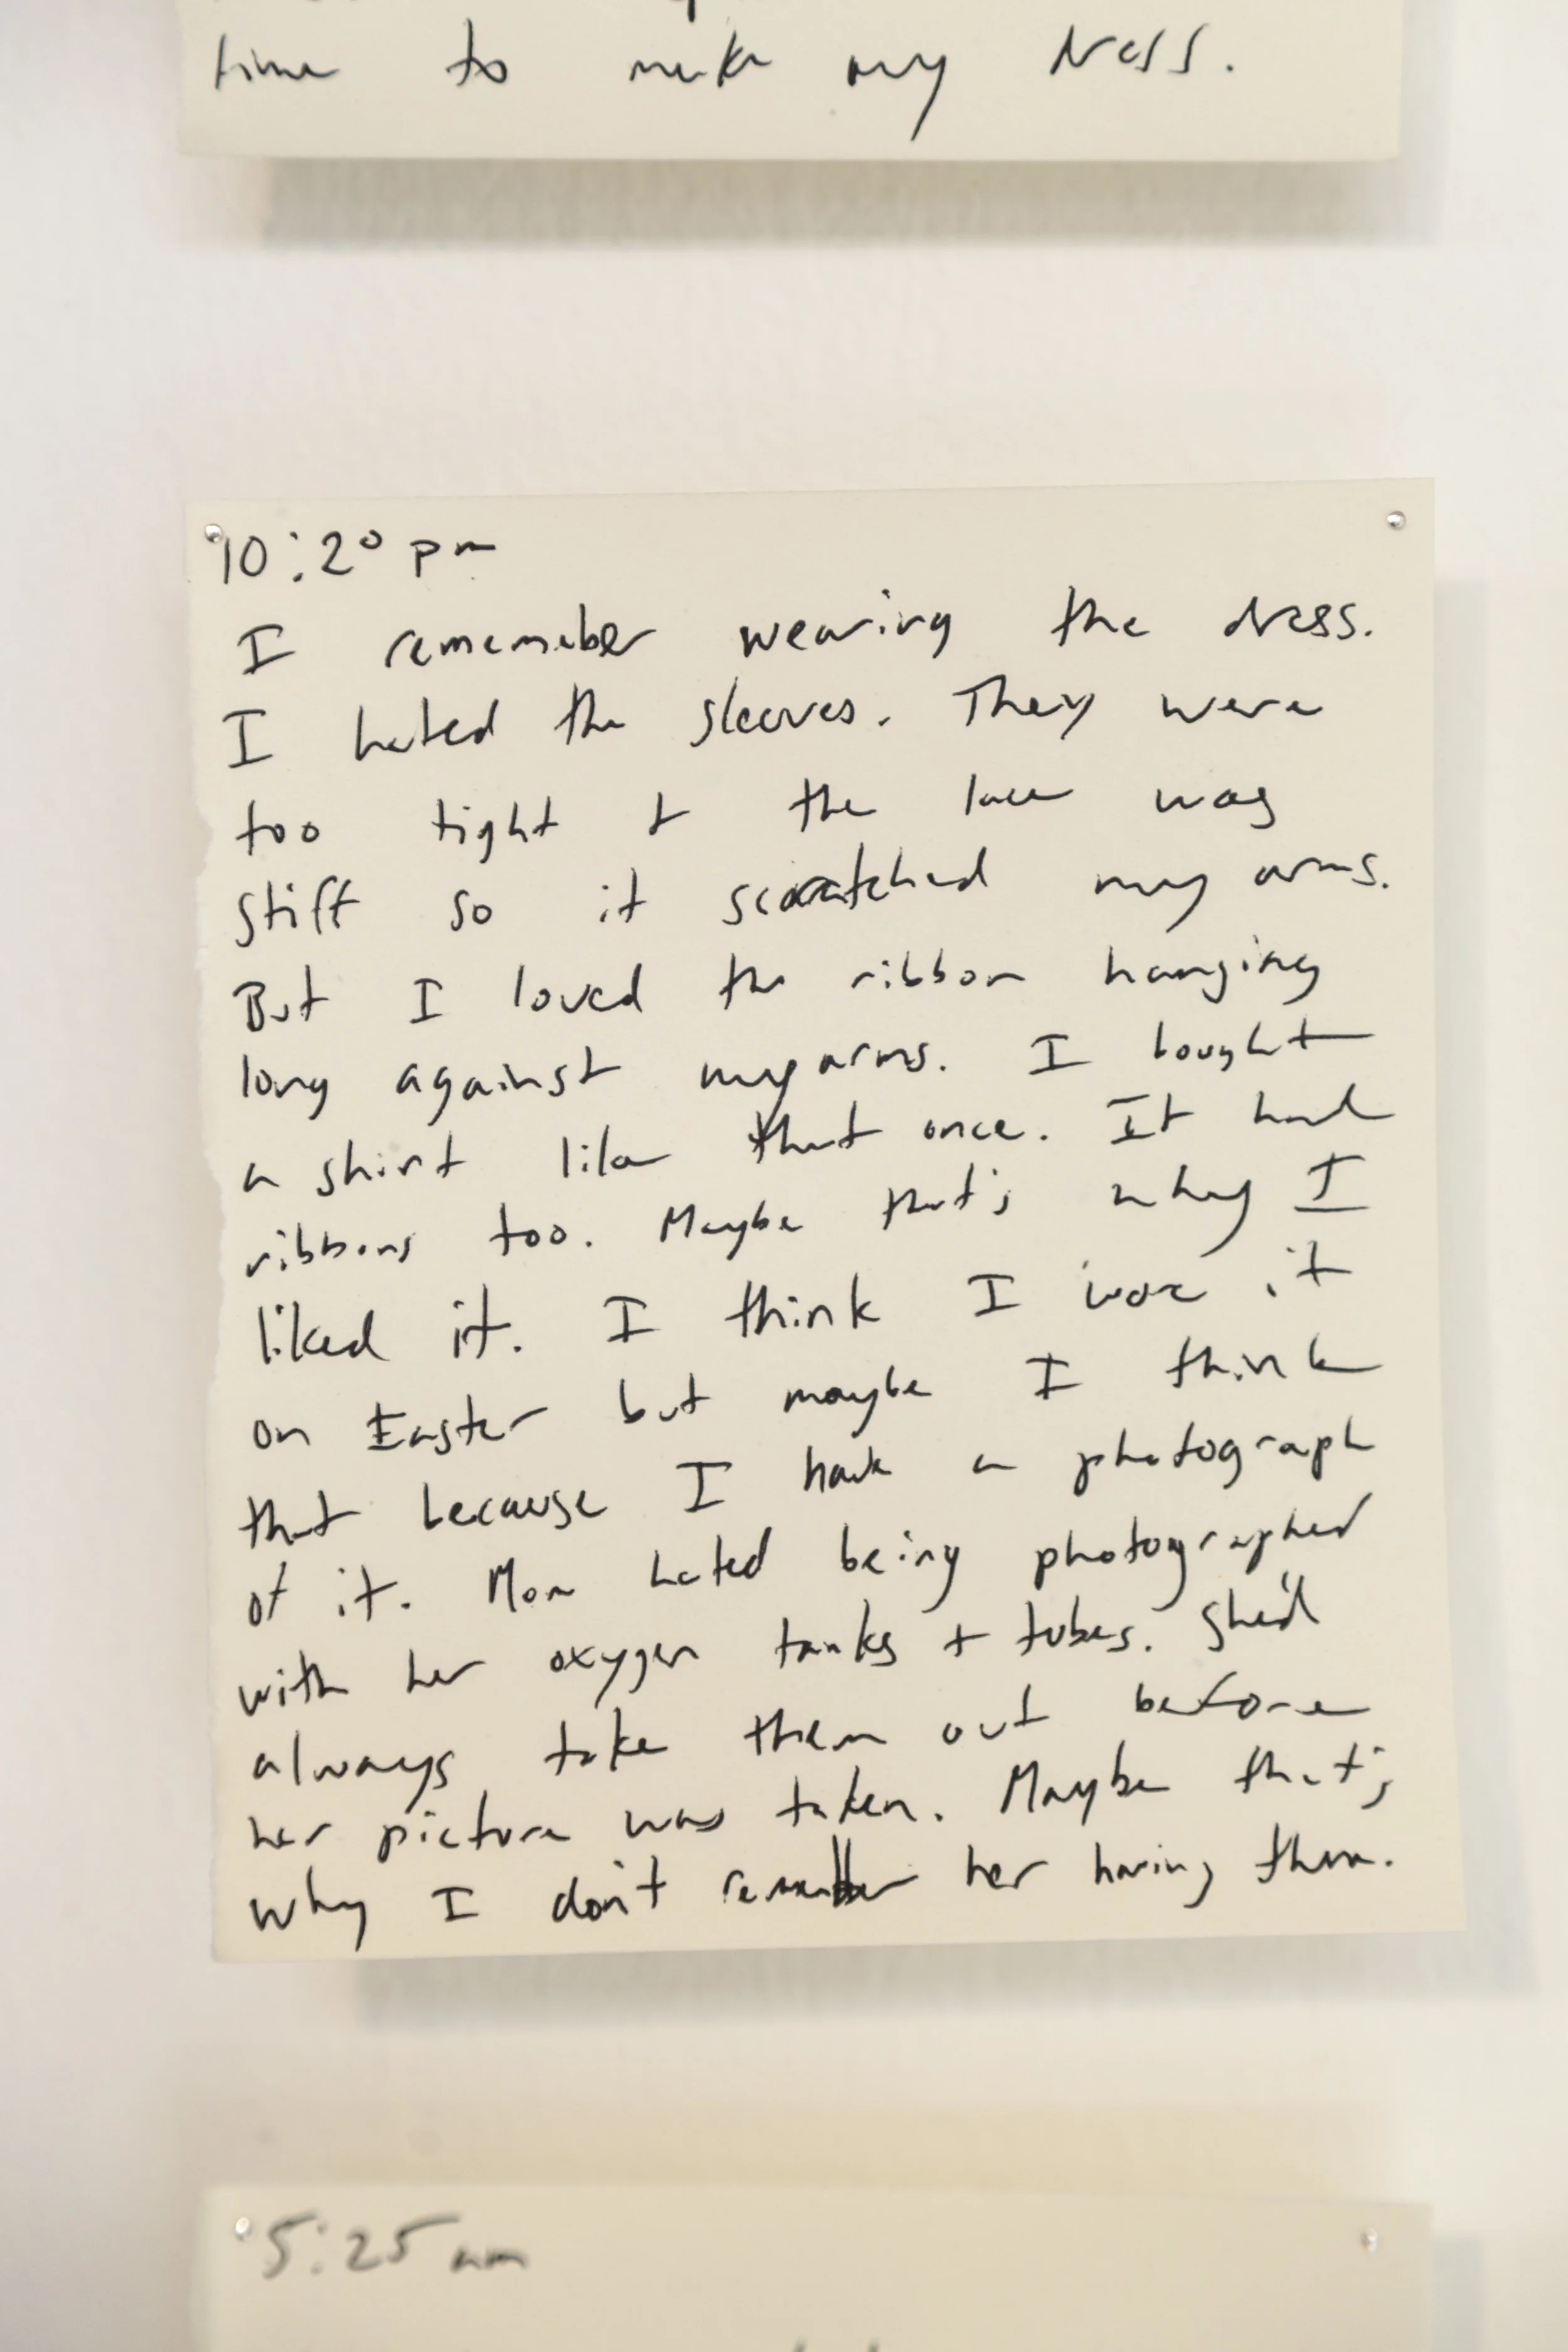 time to make my dress.
10:20 pm
I rememeber wearing the dress.
I hated the sleeves. They were
too tight + the lace was
stiff so it scratched my arms.
But I loved the ribbon hanging
long against my arms. I bought
a shirt like that once. It had
ribbons too. Maybe that's why I
liked it. I think I wore it
on Easter but maybe I think
that because I have a photograph
of it. Mom hated being photographed
with her oxygen tanks + tubes. She'd
always take them out before
her picture was taken. Maybe that's
why I don't remember her having them.
5:25 am